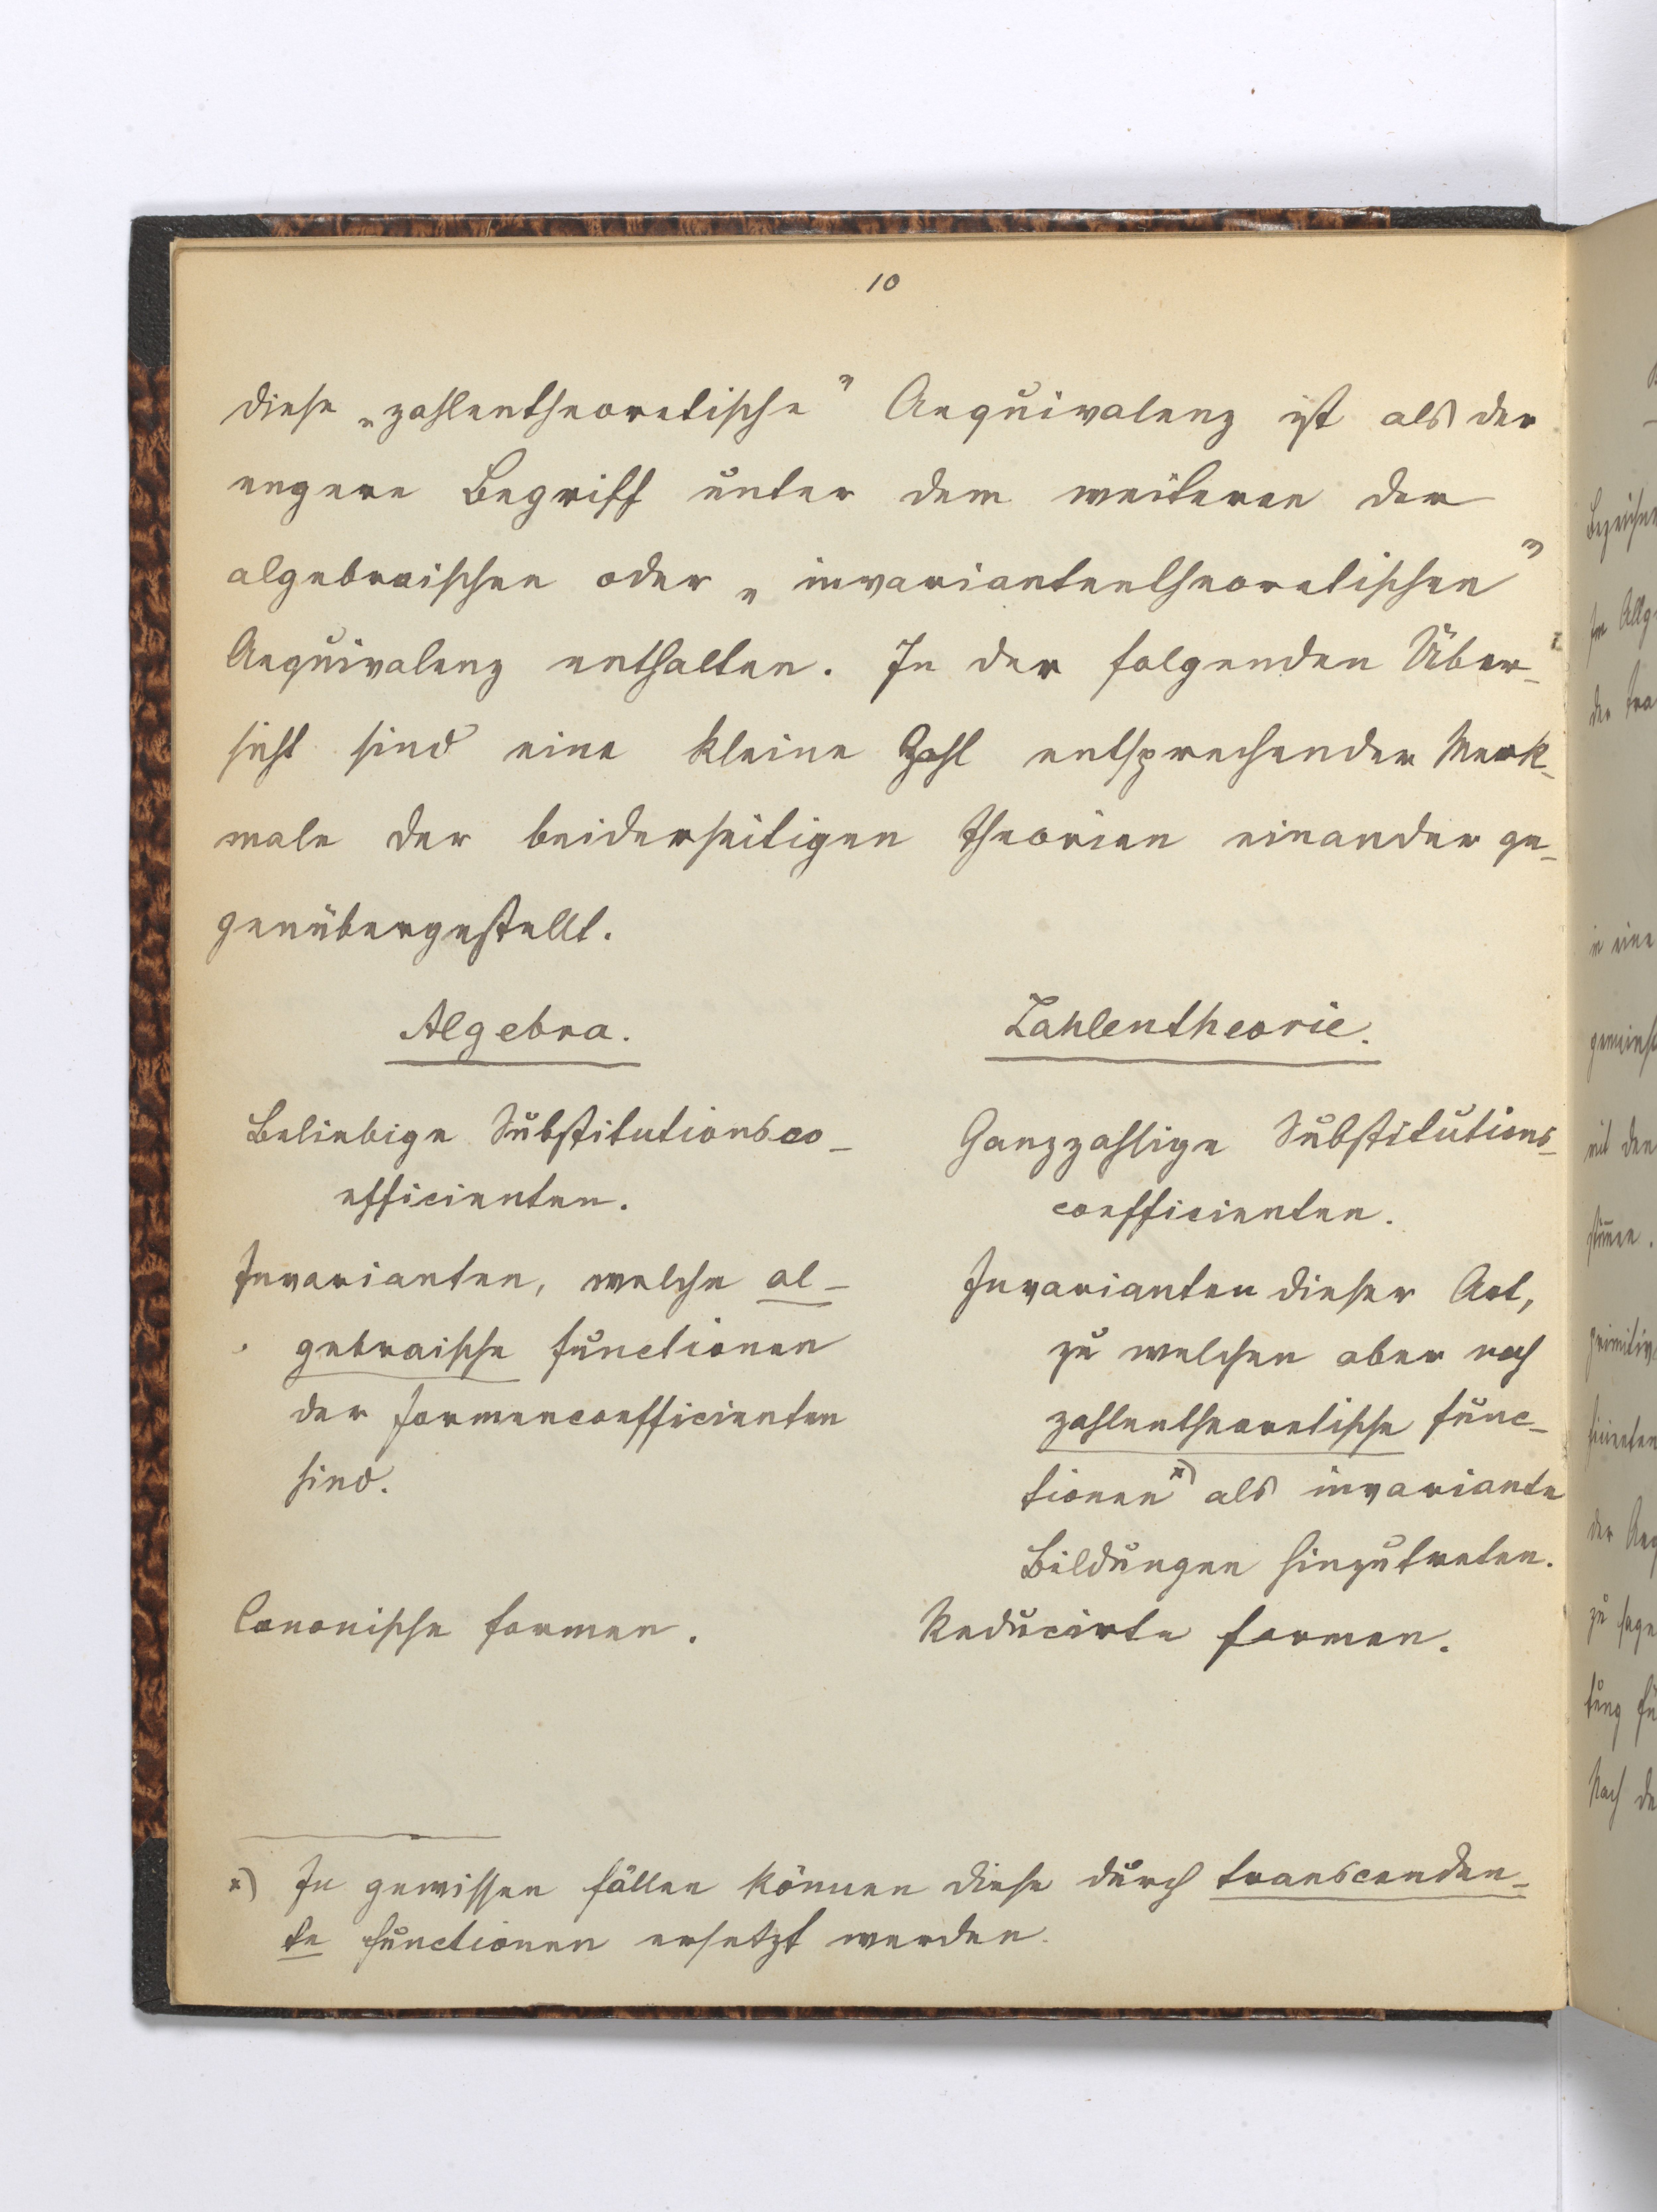 10
diese „zahlentheoretische” Aequivalenz ist als der
engere Begriff unter dem weiteren der
algebraischen oder „invariantentheoretischen”
Aequivalenz enthalten. In der folgenden Über-
sicht sind eine kleine Zahl entsprechender Merk-
male der beiderseitigen Theorien einander ge-
genübergestellt.
Algebra.
Beliebige Substitutionsco-
efficienten.
Invarianten, welche al-
gebraische Functionen
der Formencoefficienten
sind.
Canonische Formen.
Zahlentheorie.
Ganzzahlige Substitutions-
coefficienten.
Invarianten dieser Art,
zu welchen aber noch
zahlentheoretische Func-
tionen *) als invariante
Bildungen hinzutreten.
Reducirte Formen.
*) In gewissen Fällen können diese durch transcenden-
te Functionen ersetzt werden.